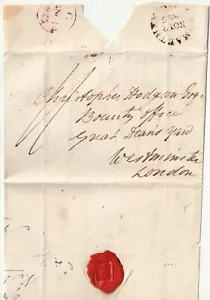 NOV
Christopher Hodgson Esqr
Bounty Office
Great Deans Yard
Westminster
London